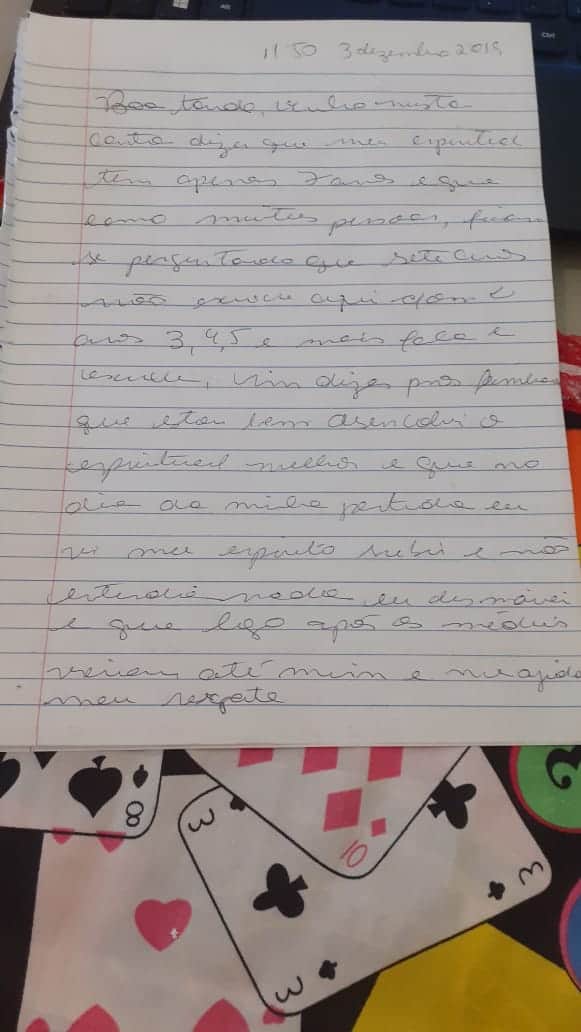 11:50 3 dezembro 2019
Boa tarde, venho nesta
carta dizer que meu espiritual
tem apenas 7 anos e que
como muitas pessoas, ficam
se perguntando que sete anos
não escreve aqui com
anos 3, 4, 5 e mais fala e
escreve, vim dizer pros
que estou bem desenvolvi o
espiritual melhor e que no
dia da minha partida eu
vi meu espirito subir e não
entendia nada, eu desmaiei
e que logo após os médicos
vieram até mim e
meu resgate
8
10
3
3
3
Ctrl
Alt